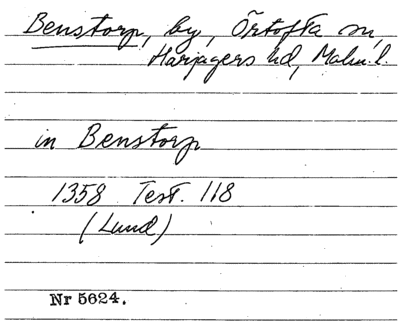 Benstorp, by, Örtofta sn,
Harjagers hd, Malm. l.
in Benstorp
1358 Test. 118
(Lund)
Nr 5624.